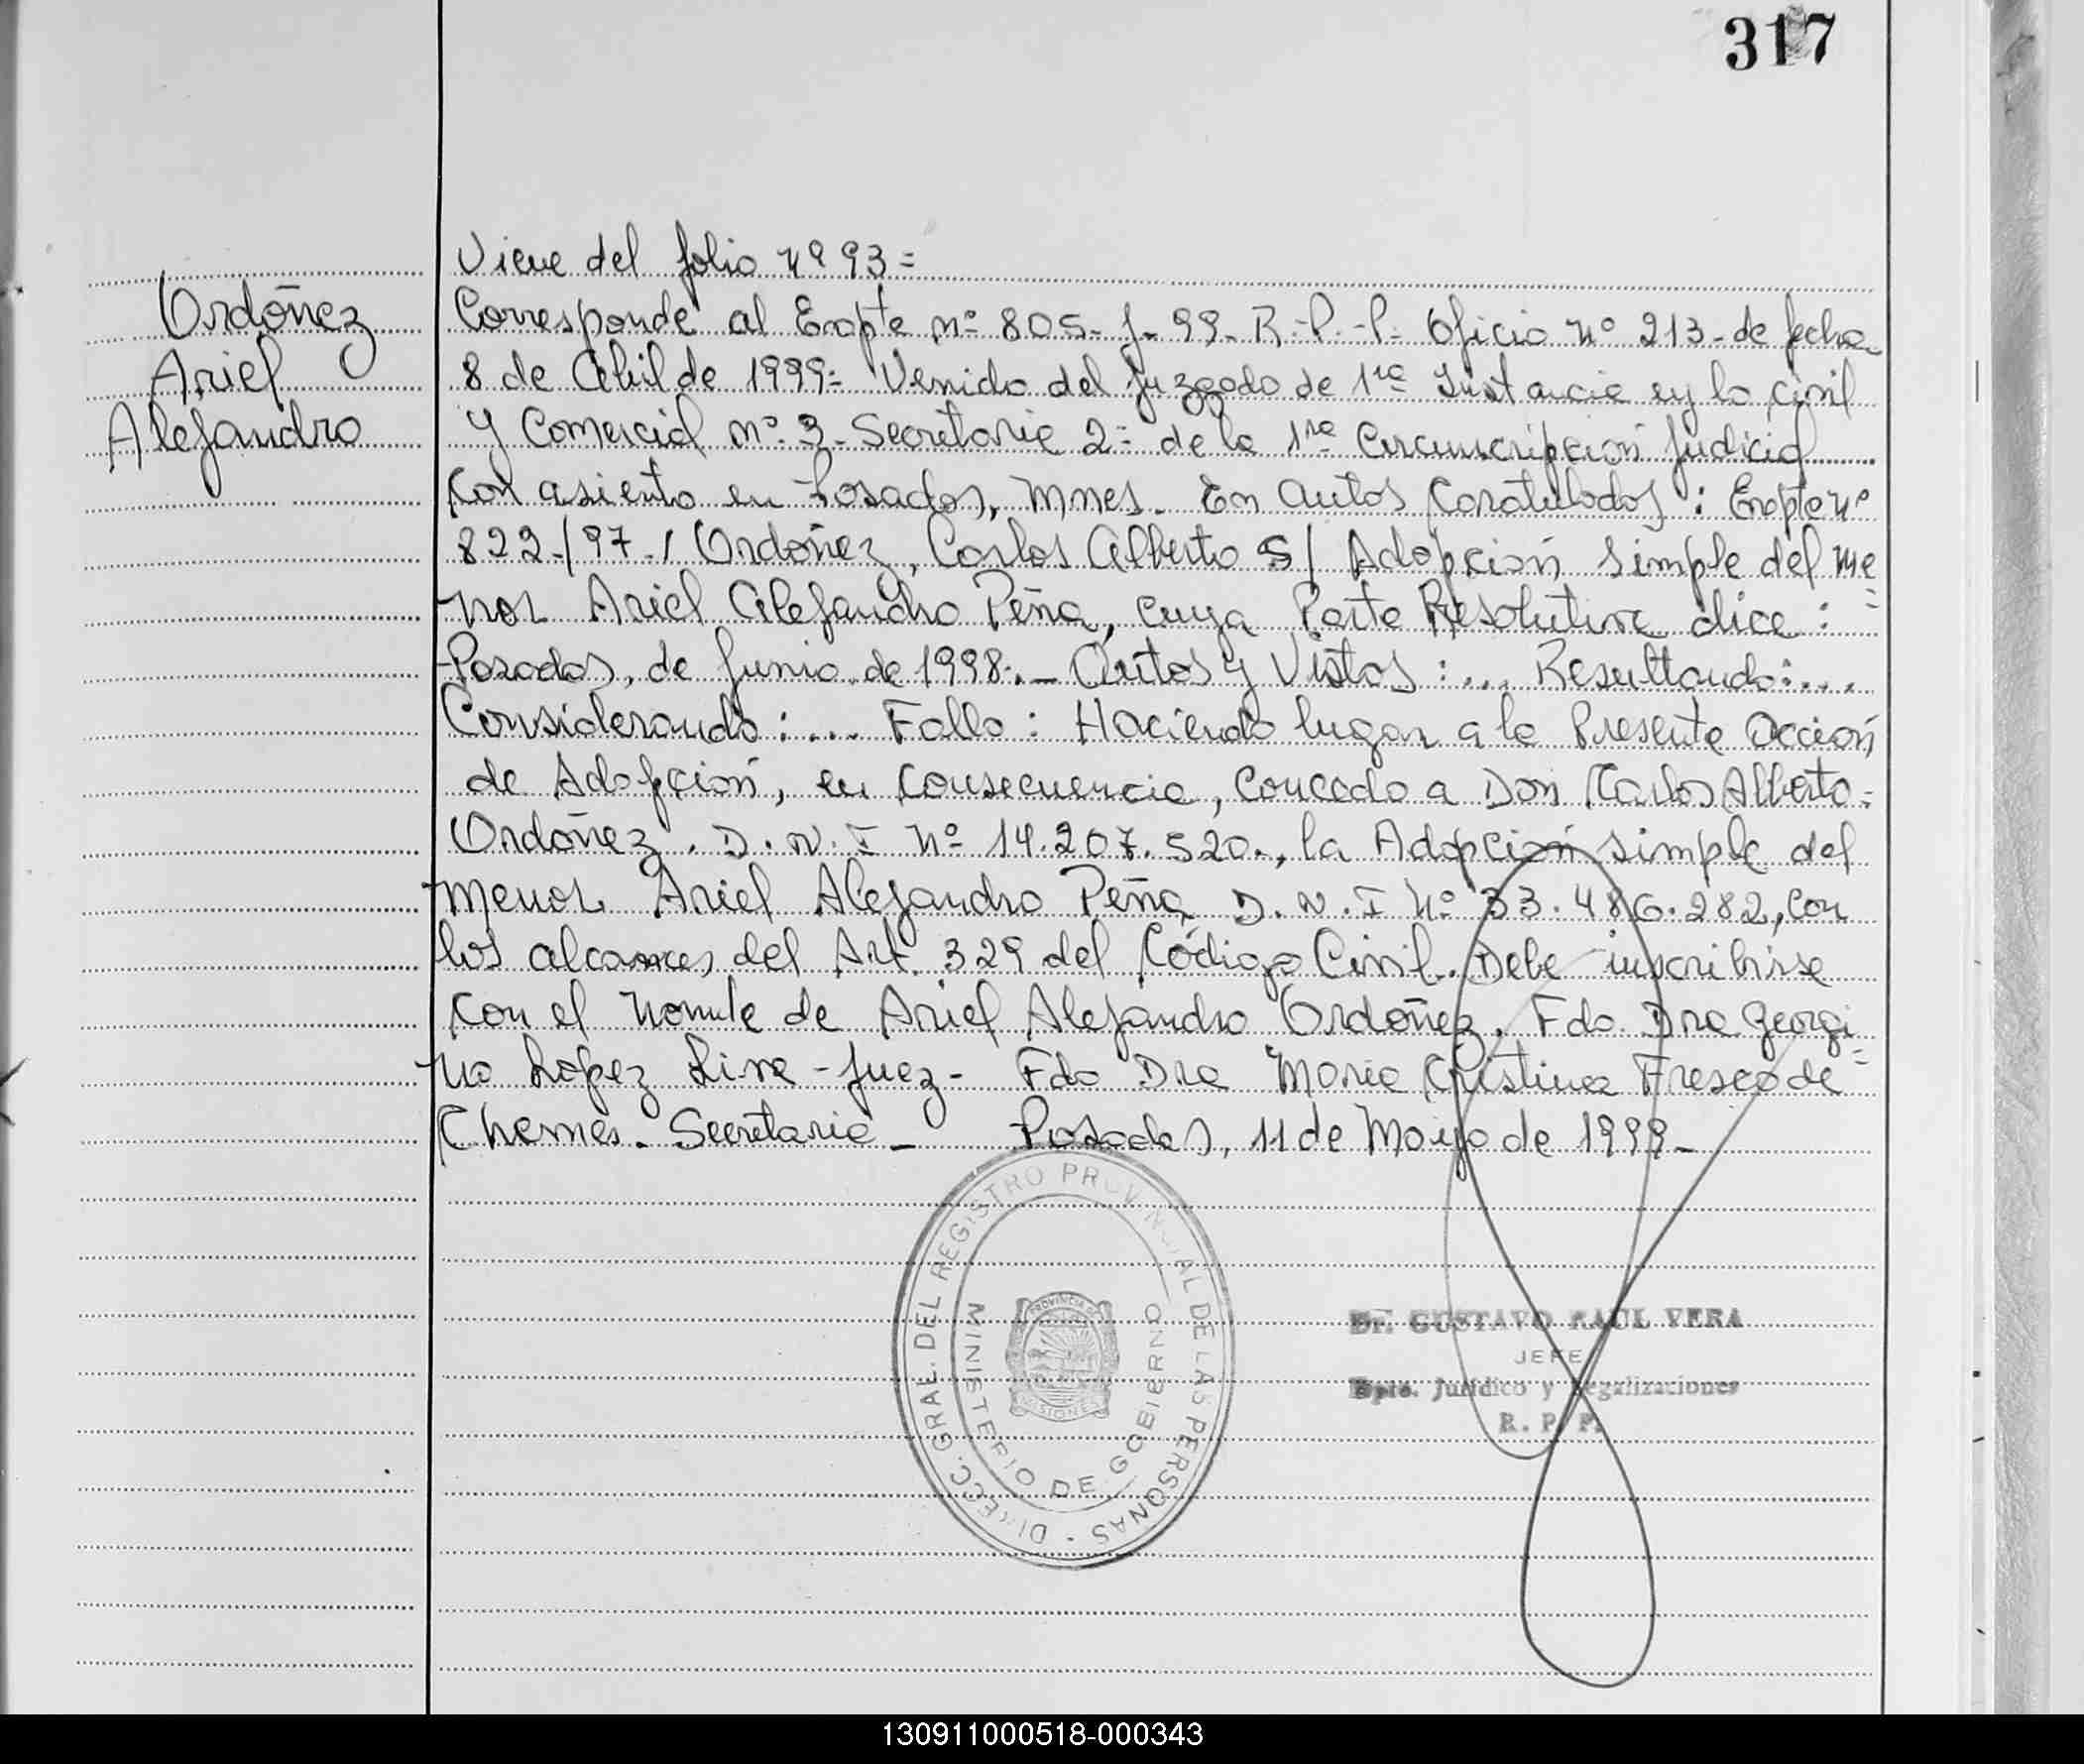 317
Ordóñez
Ariel
Alejandro
Viene del folio Nº 93=
Corresponde al Expte nº 805-J-99-R.-P.-P. Oficio Nº 213-de fecha
8 de Abril de 1999= Venido del Juzgado de 1ra Instancia en lo civil
y Comercial nº 3-Secretaria 2= de la 1ra Circunscripción Judicial
Con asiento en Posadas, Mnes. En autos Caratulados: Expte Nº
822-/97-/ Ordoñez, Carlos Alberto S/ Adopción simple del me
nor Ariel Alejandro Peña, cuya Parte Resolutiva dice:=
Posadas, de Junio de 1998.- Autos y Vistos:... Resultando:...
Considerando:... Fallo: Haciendo lugar a la Presente Acción
de Adopción, en Consecuencia, Concedo a Don Carlos Alberto=
Ordóñez. D.N.I Nº 14.207.520., la Adopción simple del
menor Ariel Alejandro Peña D.N.I Nº 33.486.282, con
los alcances del Art. 329 del Código Civil. Debe inscribirse
con el nombre de Ariel Alejandro Ordoñez. Fdo Dra Georgi=
na López Liva-Juez- Fdo Dra Maria Cristina Fresco de
Chemes. Secretaria- Posadas, 11 de Mayo de 1999-
DIRECC. GRAL. DEL REGISTRO PROVINCIAL DE LAS PERSONAS
MINISTERIO DE GOBIERNO
PROVINCIA DE
MISIONES
Dr. GUSTAVO RAUL VERA
JEFE
Dpto. Jurídico y Legalizaciones
R. P. P.
130911000518-000343